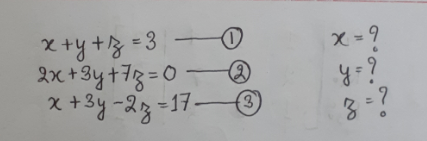 x+y+z=3 —— ① x=?
2x+3y+7z=0 —— ② y=?
x+3y-2z=17 —— ③ z=?